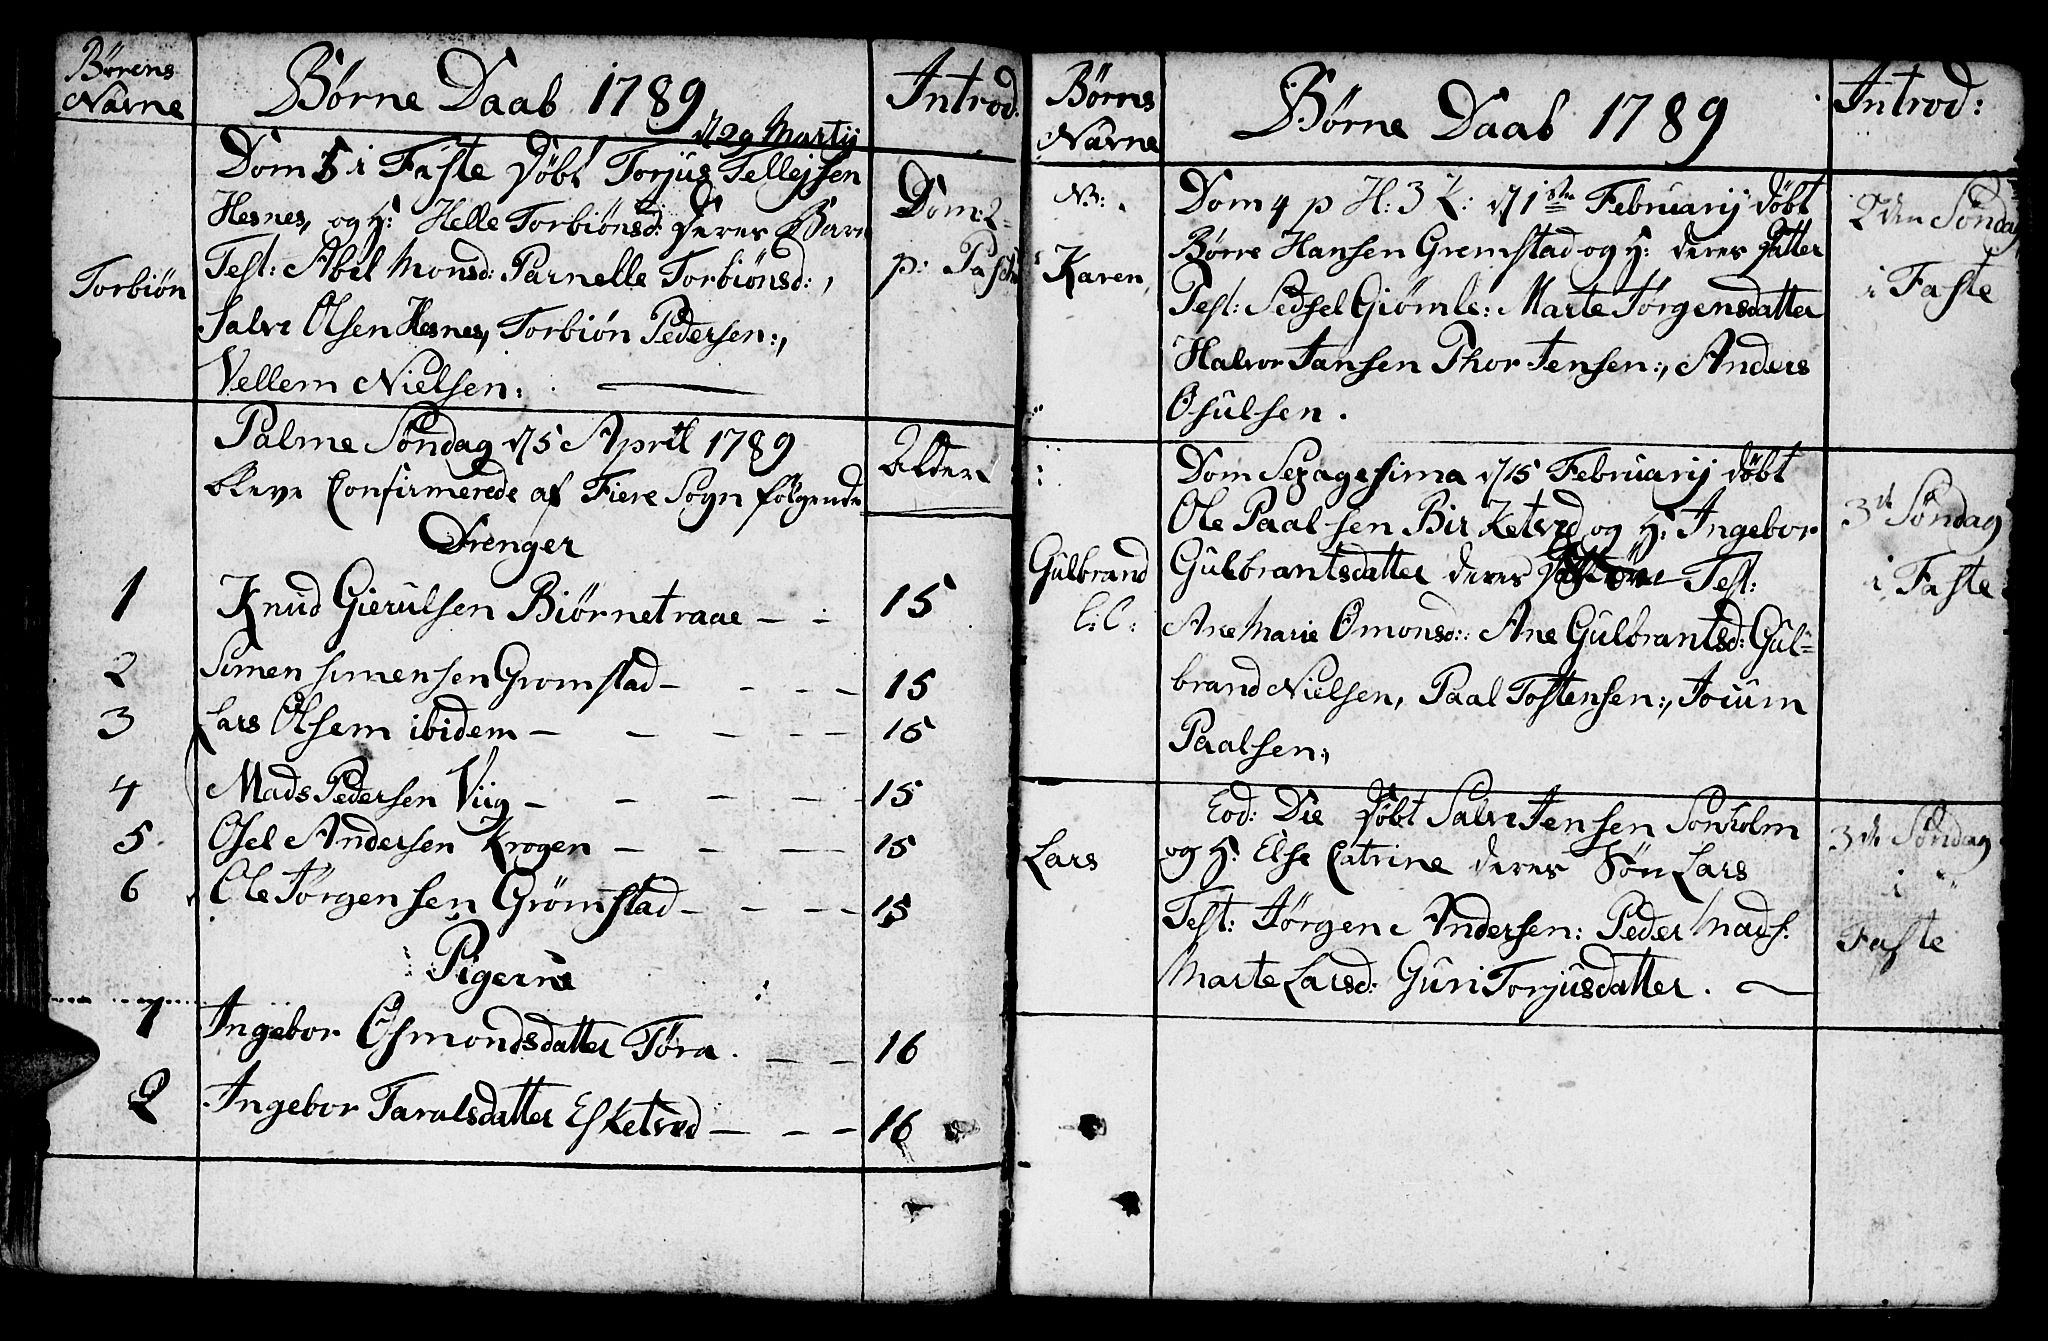 Børens
Navne
Børne Daab 1789
Introd:
d 29 Martij
Dom 5 i Faste døbt Torjus Tellejsen
Hesnes, og H: Helle Torbiönsd: deres Barn
Torbiön
Test: Abil Monsd: Parnelle Torbiönsd:,
Salve Olsen Hesnes, Torbiön Pedersen:,
Vellem Nielsen:
Dom: 2
p: Pasch
Palme Søndag d 5 April 1789
bleve Confirmerede af Fiere Sogn følgende
Alder
Drenger
1 Knud Gierulsen Biørnetraae — 15
2 Simen Simensen Gromstad — 15
3 Lars Olsem ibidem — 15
4 Mads Pedersen Viig — 15
5. Osel Andersen Krogen — 15
6 Ole Jørgensen Grömstad — 15
Pigerne
1 Ingebor Osmondsdatter Töra. — 16
2 Ingebor Taralsdatter Esketved — 16
Børns
Navne
Børne Daab 1789
Introd:
Dom 4 p H: 3 K: d 1ste Februarij døbt
Børre Hansen Gremstad og H: deres datter
Karen,
Test: Sedsel Giömle: Marte Jørgensdatter
Halvor Jansen Thor Jensen:, Anders
Osulsen.
2den Søndag
i Faste
Dom Sexagesima d 15 Februarij døbt
Ole Paalsen Birketved og H: Ingebor
Gulbrand
Gulbrantsdatter deres Test:
Ane Marie Omonsd: Ane Gulbrantsd: Gul-
brand Nielsen, Paal Tostensen:, Joium
Paalsen:,
3de Søndag
i Faste
Eod: Die døbt Salve Jensen Sönholm
Lars
og H: Else Catrine deres Søn Lars
Test: Jörgen Andersen: Peder Mads:
Marte Larsd: Guri Torjusdatter.
3de Søndag
i
Faste